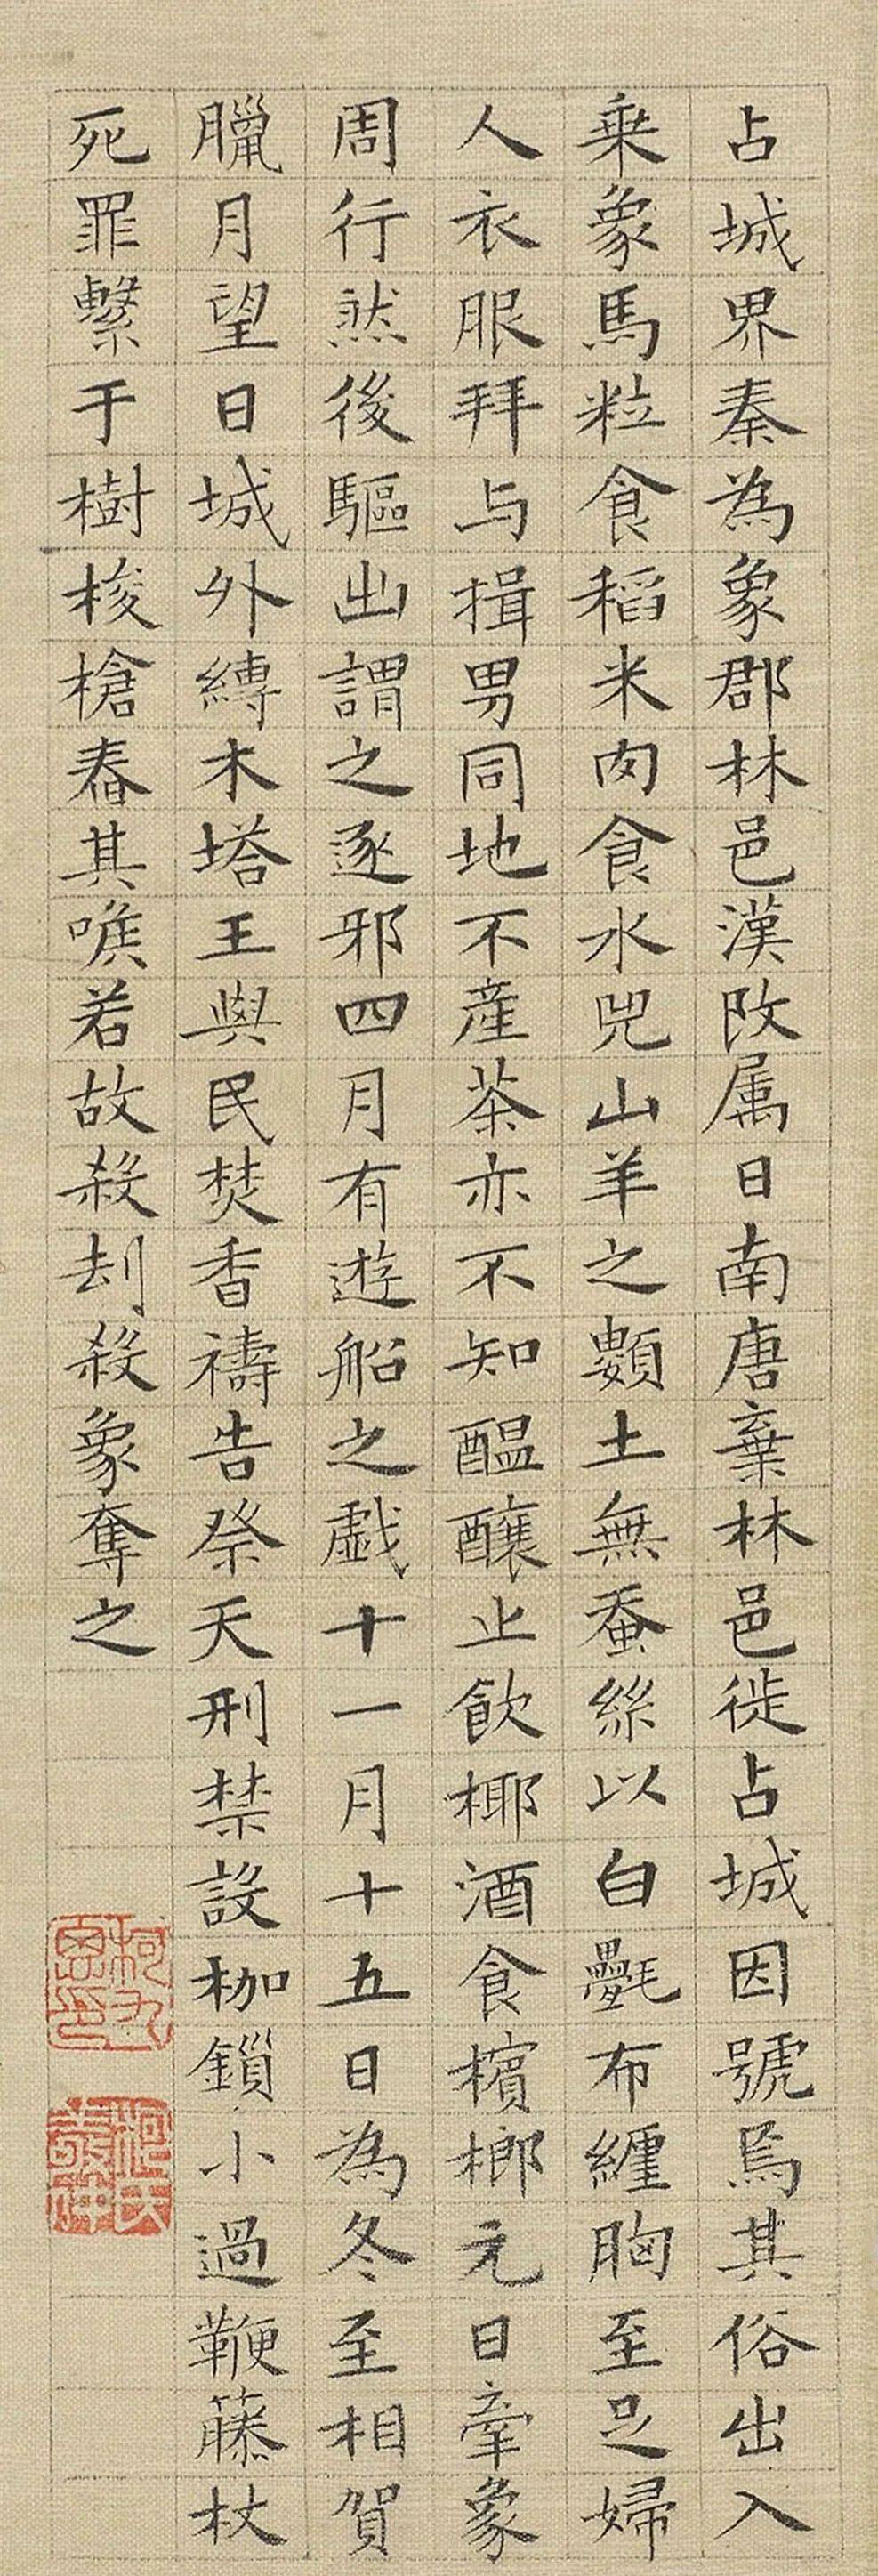 占城界秦為象郡林邑漢改属日南唐棄林邑徙占城因號焉其俗出入
乗象馬粒食稻米肉食水兕山羊之類土無蚕絲以白氎布纏胸至足婦
人衣服拜与揖男同地不産茶亦不知醖釀止飲椰酒食檳榔元日牽象
周行然後驅出謂之逐邪四月有遊船之戯十一月十五日為冬至相賀
臘月望日城外縛木塔王與民焚香禱告祭天刑禁設枷鎖小過鞭藤杖
死罪繫于樹梭槍舂其喉若故殺刦殺象奪之
柯九思印